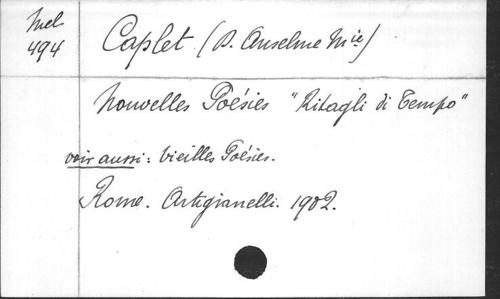 Mel
494
Caplet (D. Anselme Mie)
Nouvelles Poésies "Ritagli di Tempo"
voir aussi: Vieilles Poésies.
Rome. Artigianelli. 1902.